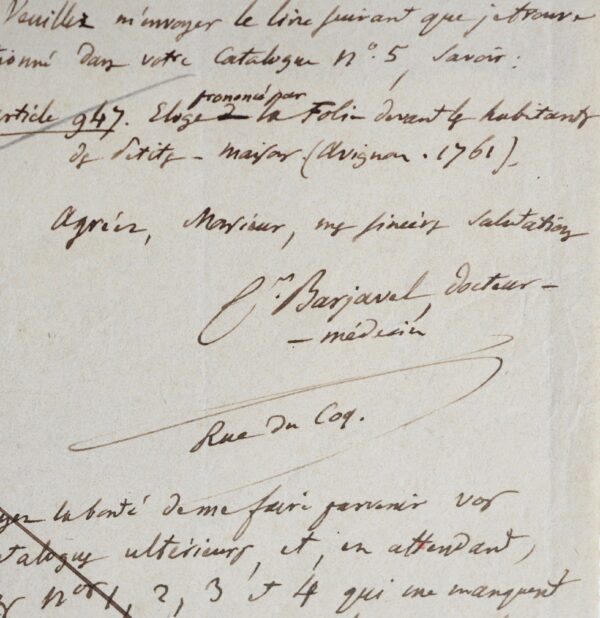 Veuillez m'envoyer le livre suivant que je trouve
tionné dans votre Catalogue n.° 5, Savoir :
article 947. Eloge prononcé par la Folie devant les habitants
des petites-maisons (Avignon. 1761).
Agréez, Monsieur, mes sincères salutations
Barjavel, docteur-
-médecin
Rue du Coq.
la bonté de me faire parvenir vos
catalogues ultérieurs, et, en attendant,
nos 1, 2, 3 et 4 qui me manquent